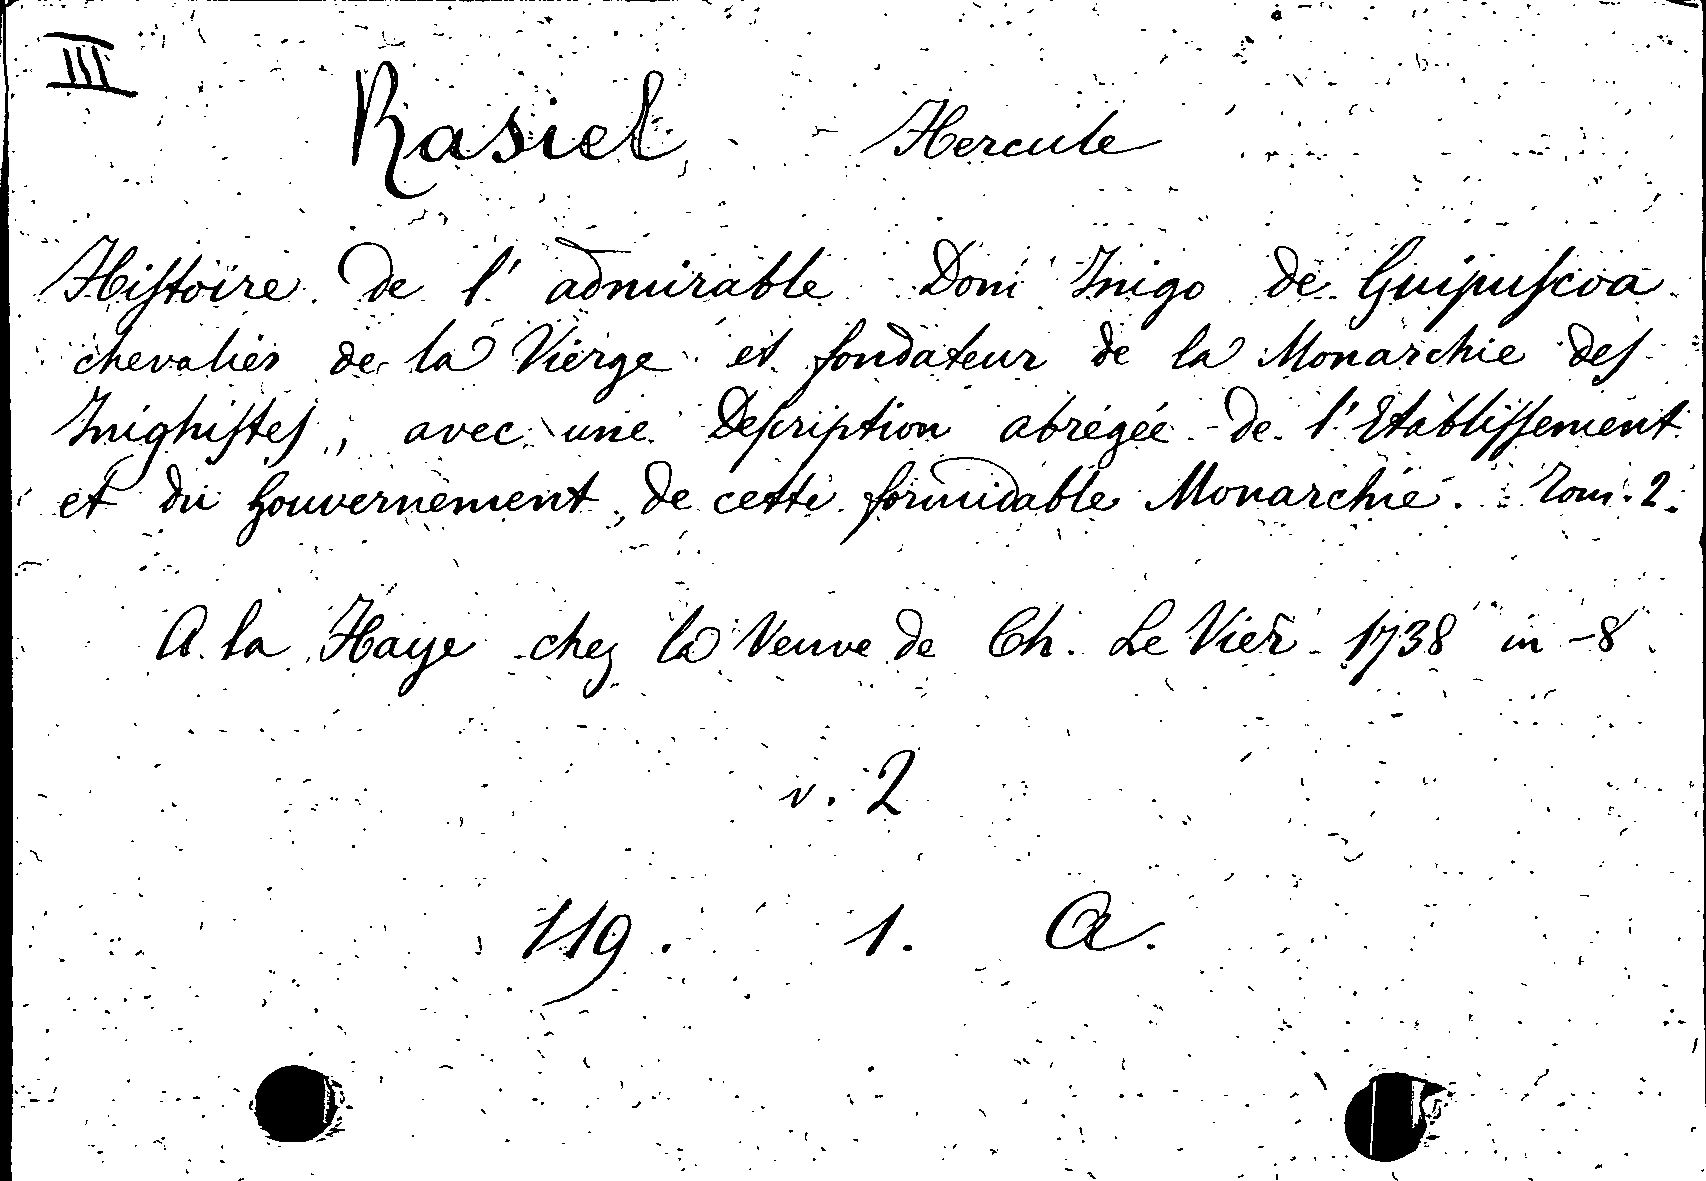 III
Rasiel, Hercule
Hiſtoire de l' admirable Dom Inigo de Guipuſcoa
chevalier de la Vierge et fondateur de la Monarchie deſ
Inighiſteſ, avec une Deſcription abrégée de l' Etabliſſement
et du Gouvernement de cette formidable Monarchie. Tom. 2.
A la Haye chez la Veuve de Ch. Le Vier 1738 in -8
v. 2
119. 1. A.